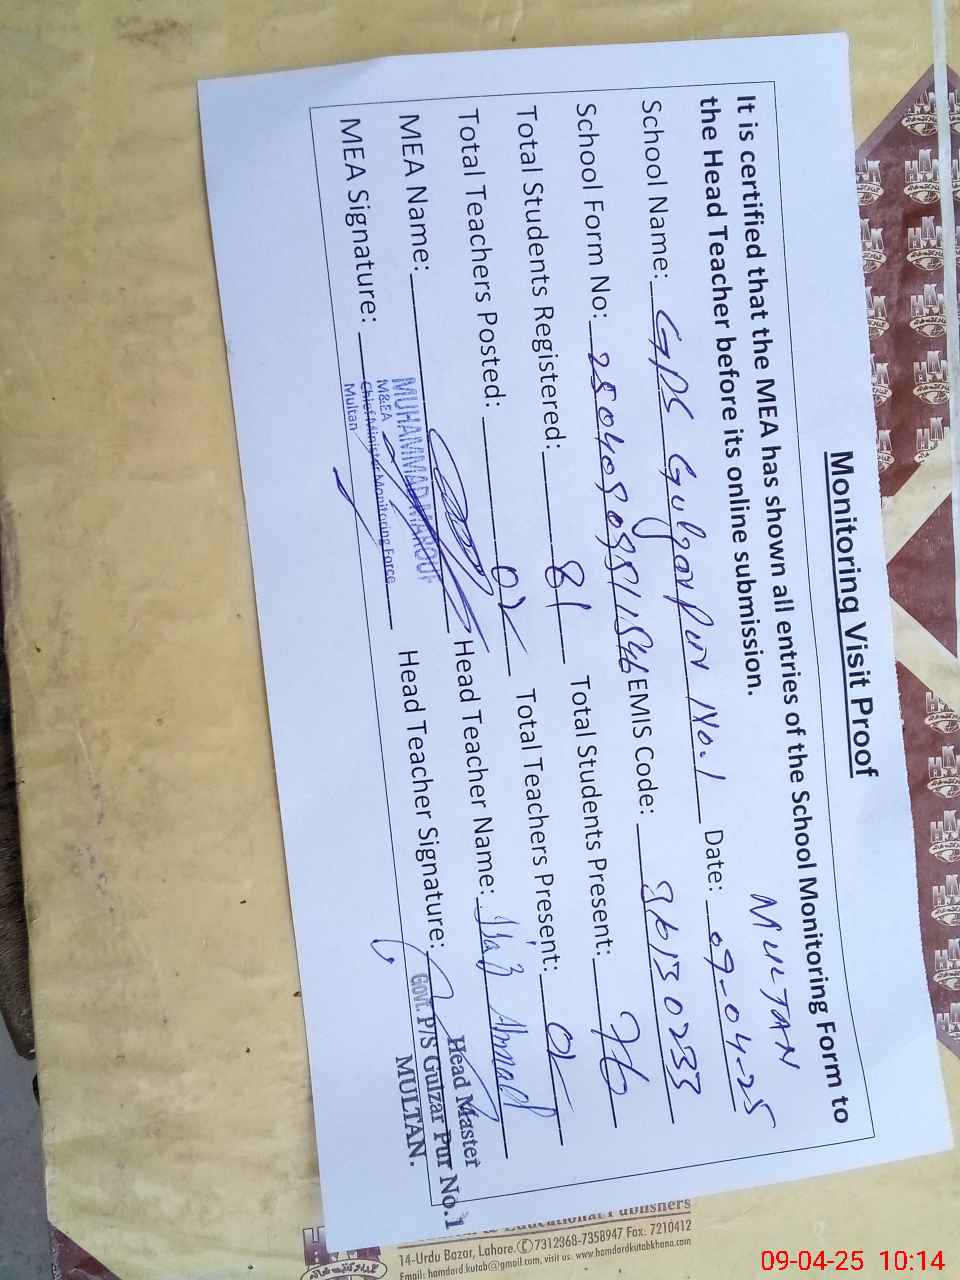 Monitoring Visit Proof
It is certified that the MEA has shown all entries of the School Monitoring Form to
the Head Teacher before its online submission.
MULTAN
School Name: GPS Gulzarpur No.1 Date: 09-04-25
School Form No: EMIS Code: 36130233
Total Students Registered: 81 Total Students Present: 76
Total Teachers Posted: 02 Total Teachers Present: 02
MEA Name: Head Teacher Name: Ijaz Ahmad
MUHAMMAD MAROUF
M&EA
Chief Minister Monitoring Force
Multan
MEA Signature: Head Teacher Signature:
Head Master
Govt. P/S Gulzar Pur No.1
MULTAN.
Educational Publishers
14-Urdu Bazar, Lahore. Ⓒ7312368-7358947 Fax: 7210412
Email: hamdard.kutab@gmail.com, visit us: www.hamdardkutabkhana.com
09-04-25 10:14